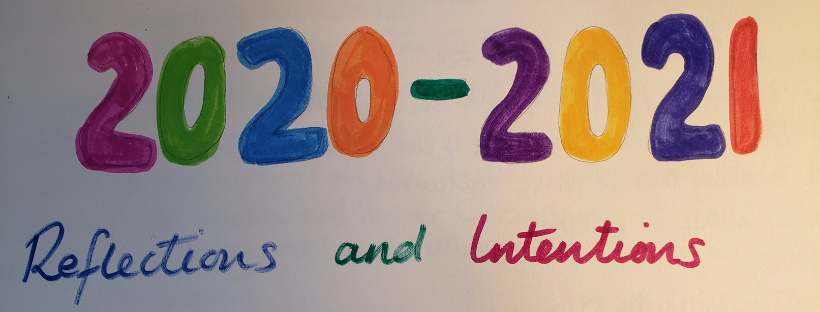 2020-2021
Reflections and Intentions